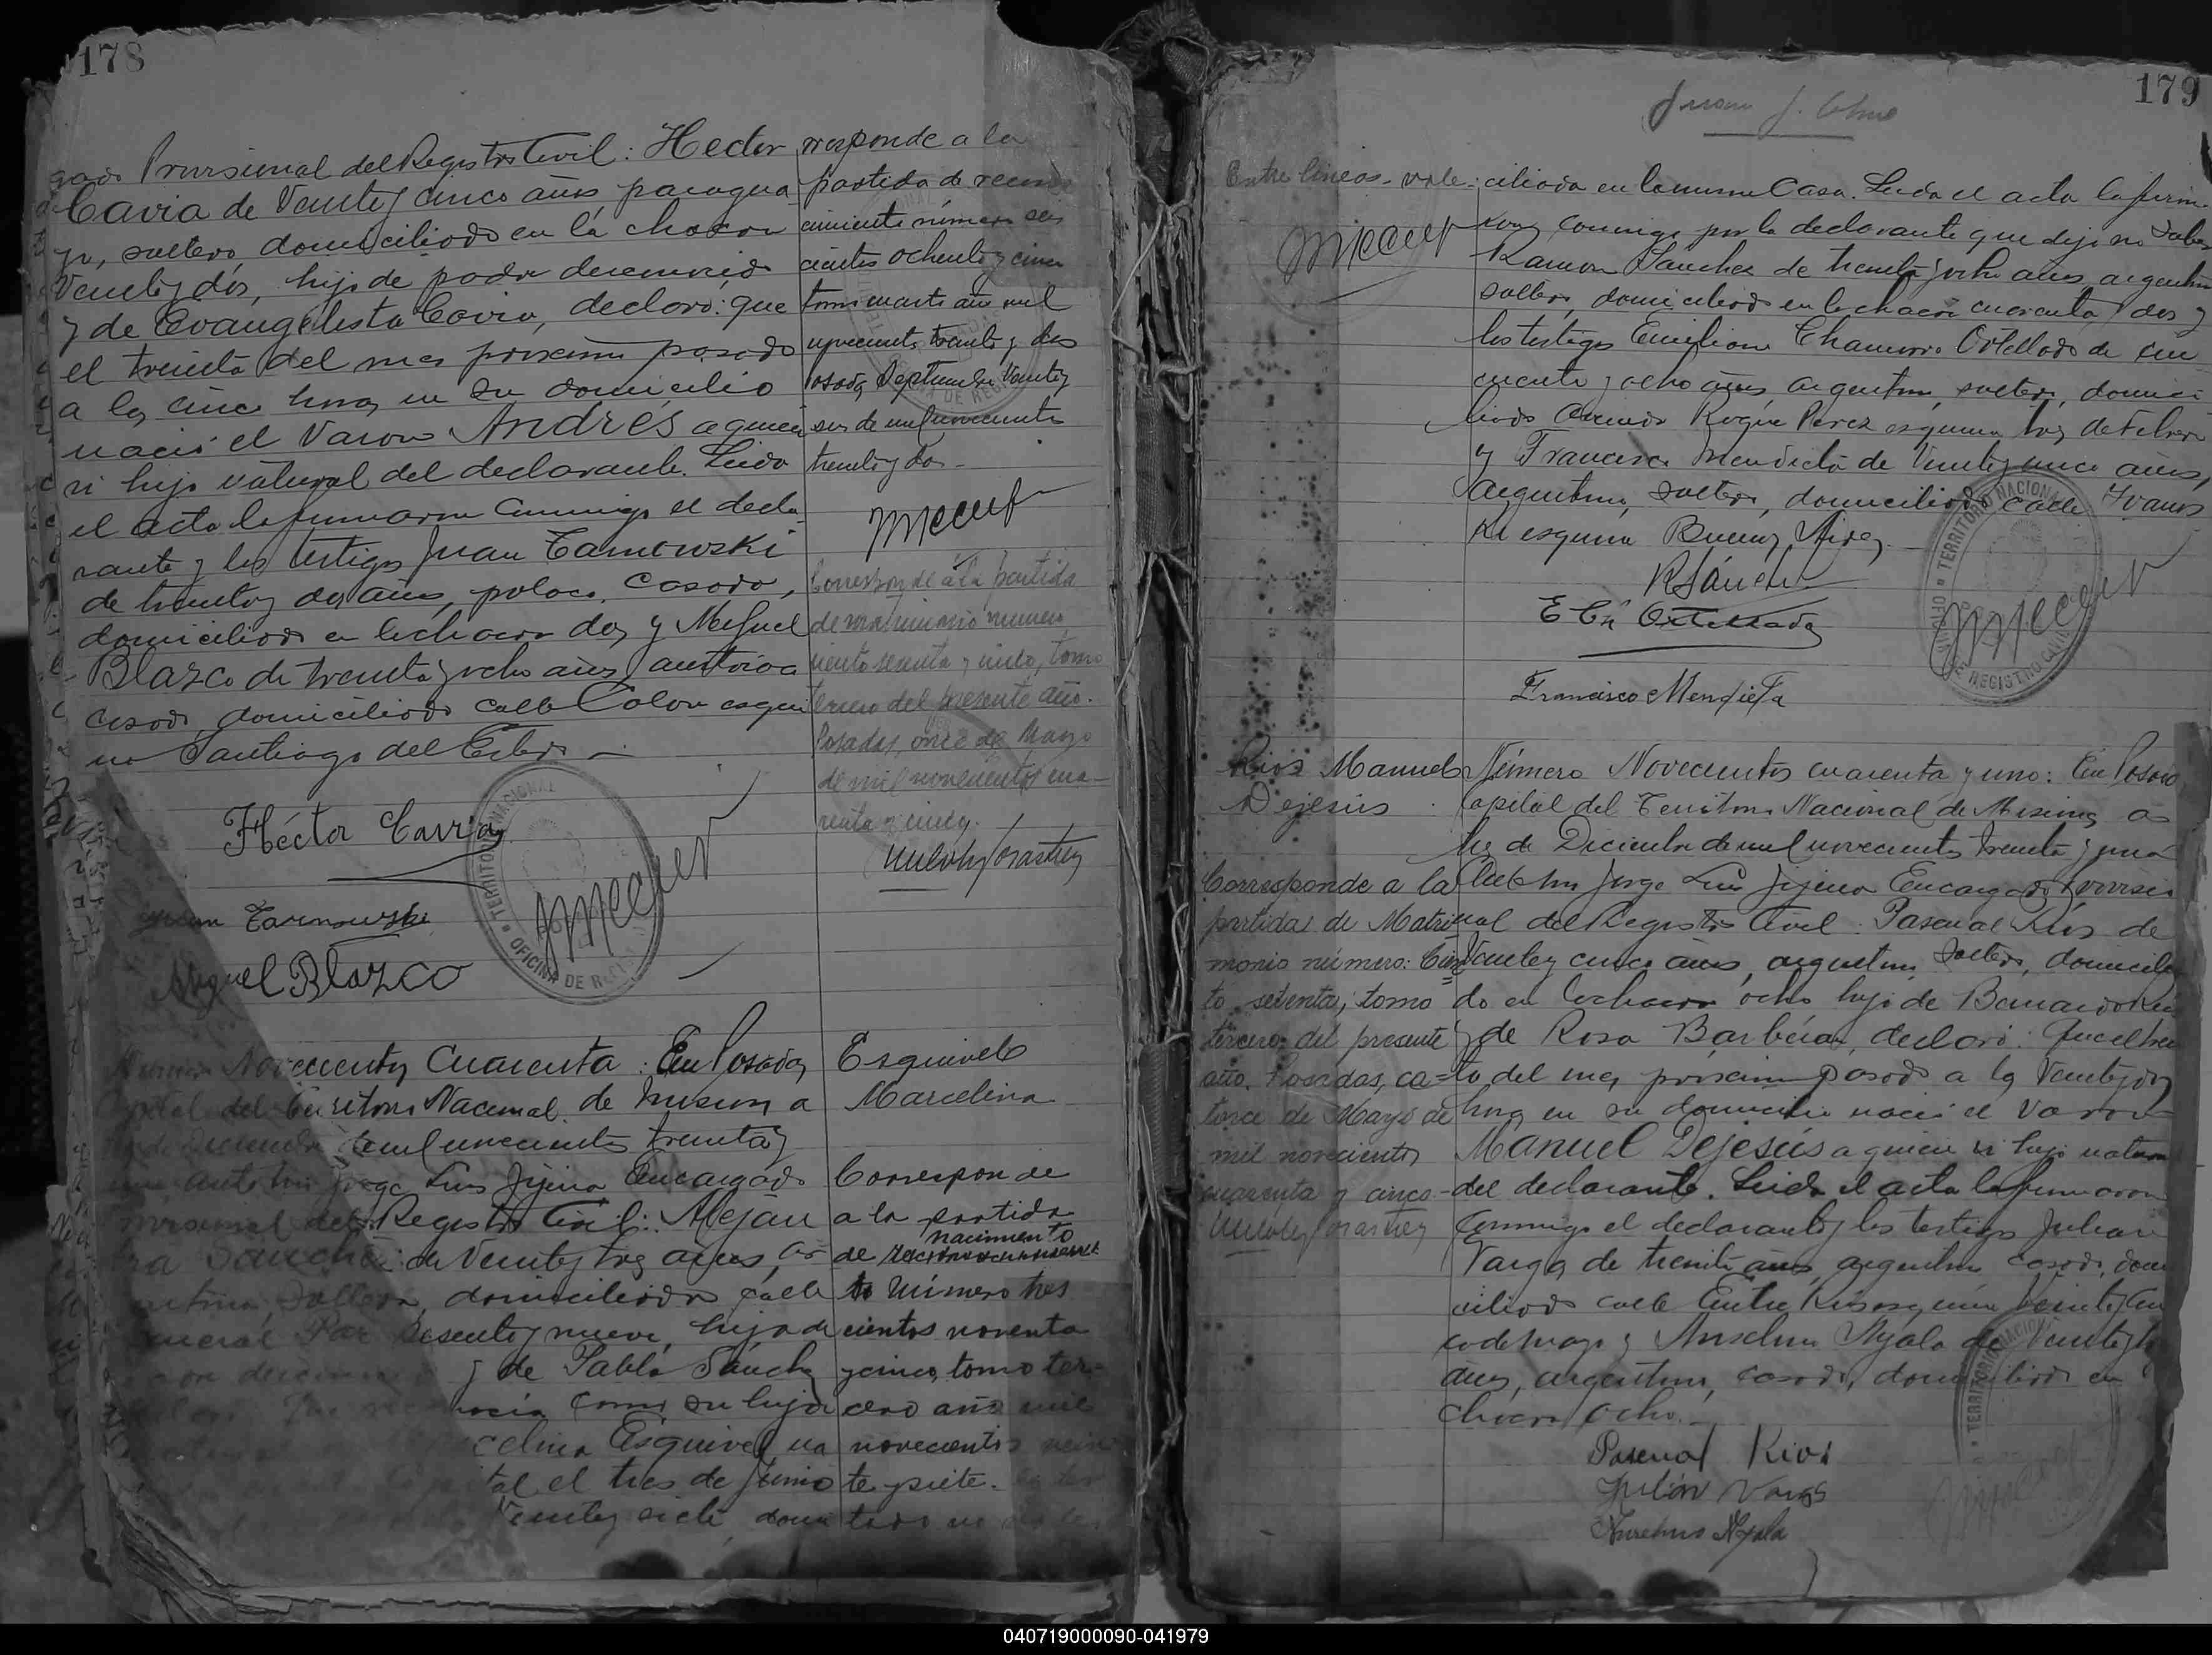 178
gado Provisional del Registro Civil: Hector
Cavia de Veinte y cinco años, paragua
yo, soltero, domiciliado en la chacra
Veinte y dós, hijo de padre desconocido
y de Evangelista Cavia, declaró: que
el treinta del mes proximo pasado
a las cinco horas en su domicilio
nació el Varon Andrés a quien
hijo natural del declarante. Leida
el acta la firmaron conmigo el decla
rante y los testigos Juan Tarnowski
de treinta y dos años, polaco, casado,
domiciliado en la chacra dos y Miguel
Blazco de treinta y ocho años, austriaco
casado domiciliado calle Colon esqui
na Santiago del Estero
Héctor Cavia
Juan Tarnowski
Miguel Blazco
rresponde a la
partida de recono
cimiento número seis
cientos ochenta y cinco
tomo cuarto año mil
novecientos treinta y dos
Posadas Septiembre Veinte y
seis de mil novecientos
treinta y dos
Corresponde a la partida
de matrimonio numero
ciento sesenta y cinco, tomo
tercero del presente año.
Posadas, once de Mayo
de mil novecientos cua-
renta y cinco.
Número Novecientos Cuarenta: En Posadas
Capital del Territorio Nacional de Misiones a
de Diciembre de mil novecientos treinta y
uno ante mi Jorge Luis Jijena Encargado
Provisional del Registro Civil: Alejan
dra Sanchez de Veinte y tres años, ar
gentina, soltera, domiciliada calle
General Paz Sesenta y nueve, hija de
y de Pabla Sánchez
como su hija
celina Esquivel
tal el tres de Junio
Veinte y siete, domi
Esquivel
Marcelina
Corresponde
a la partida
nacimiento
de
to número tres
cientos noventa
y cinco, tomo ter-
cero año mil
novecientos vein
te y siete.
179
Juan J.
Entre lineas - vale - ciliada en la misma Casa. Leida el acta la firma
ron conmigo por la declarante que dijo no saber
Ramon Sanchez de treinta y ocho años, argentino
soltero, domiciliado en la chacra cuarenta y dos y
los testigos Emiliano Chamorro Ortellado de cin
cuenta y ocho años, argentino, soltero, domici
liado Avenida Roque Perez esquina tres de Febrero
y Francisco Mendieta de Veinte y cinco años,
argentino, soltero, domiciliado calle Ivanos
ki esquina Buenos Aires.
R Sánchez
E Ch Ortellado
Francisco Mendieta
TERRITORIO NACIONAL
OFICINA DE REGISTRO CIVIL
Rios Manuel
Dejesús
Corresponde a la
partida de Matri
monio número: Cien
to setenta, tomo
tercero del presente
año. Posadas, ca-
torce de Mayo de
mil novecientos
cuarenta y cinco-
Número Novecientos cuarenta y uno: En Posadas
Capital del Territorio Nacional de Misiones a
tres de Diciembre de mil novecientos treinta y uno
ante mi Jorge Luis Jijena Encargado Provisio
nal del Registro Civil: Pascual Ríos de
Veinte y cinco años, argentino, soltero, domicilia
do en la chacra ocho hijo de Bernardo
y de Rosa Barbéra, declaró: Que el trein
ta del mes proximo pasado a las Veinte y dos
horas en su domicilio nació el Varon
Manuel Dejesús a quien hijo natural
del declarante. Leida el acta la firmaron
conmigo el declarante y los testigos Julian
Varga de treinta años, argentino casado, domi
ciliado calle Entre Rios esquina Veinte y cin
co de Mayo y Anselmo Ayala de Veinte y
años, argentino, casado, domiciliado en
chacra ocho.
Pascual Rios
Julián Vargas
Anselmo Ayala
040719000090-041979